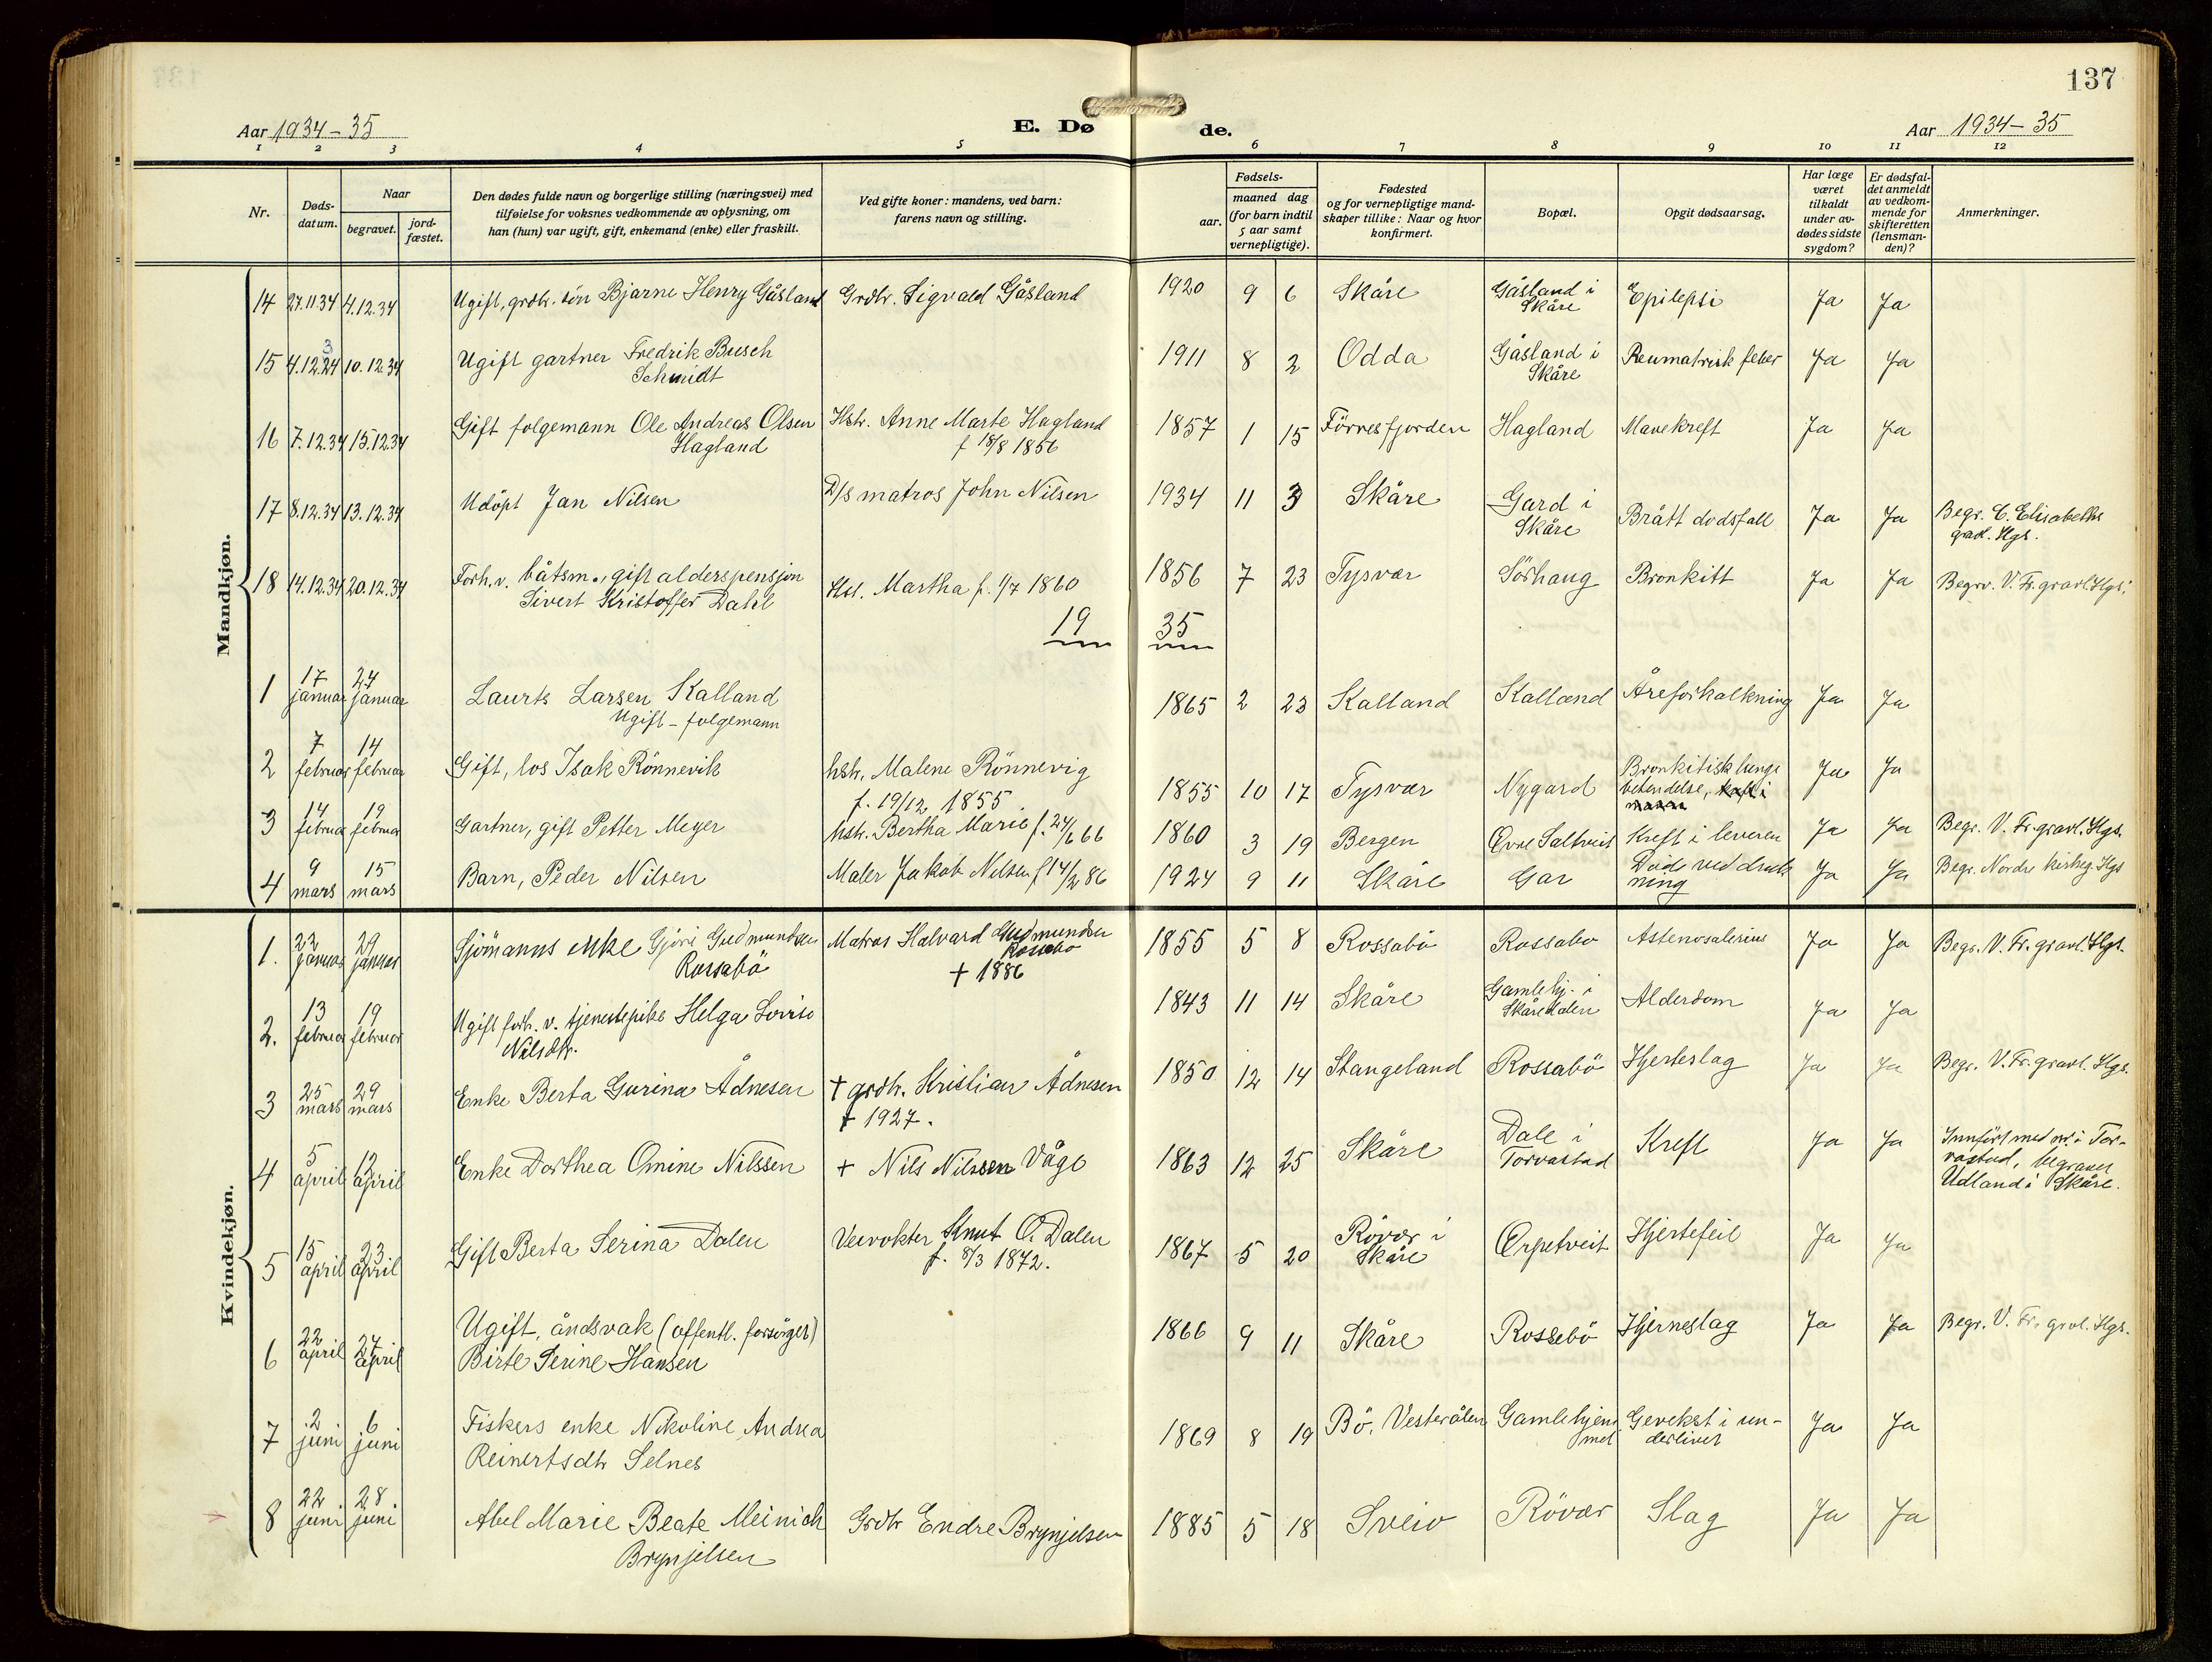 137
Aar 1934-35
E. Døde.
Aar 1934-35
1 2 3 4 5 6 7 8 9 10 11 12
Nr.
Døds-datum.
Naar
begravet.
jord-fæstet.
Den dødes fulde navn og borgerlige stilling (næringsvei) med
tilføielse for voksnes vedkommende av oplysning, om
han (hun) var ugift, gift, enkemand (enke) eller fraskilt.
Ved gifte koner: mandens, ved barn:
farens navn og stilling.
Fødsels-
aar.
maaned dag
(for barn indtil
5 aar samt
vernepligtige).
Fødested
og for vernepligtige mand-
skaper tillike: Naar og hvor
konfirmert.
Bopæl.
Opgit dødsaarsag.
Har læge
været
tilkaldt
under av-
dødes sidste
sygdom?
Er dødsfal-
det anmeldt
av vedkom-
mende for
skifteretten
(lensman-
den)?
Anmerkninger.
Mandkjøn.
14 27.11.34 4.12.34 Ugift, grdbr. sön Bjarne Henry Gåsland Grdbr. Sigvald Gåsland 1920 9 6 Skåre Gåsland i Skåre Epilepsi Ja Ja
15 4.12.34 10.12.34 Ugift gartner Fredrik Busch Schmidt 1911 8 2 Odda Gåsland i Skåre Reumatrisk feber Ja Ja
16 7.12.34 15.12.34 Gift folgemann Ole Andreas Olsen Hagland Hstr. Anne Marte Hagland f 18/8 1856 1857 1 15 Förresfjorden Hagland Mavekreft Ja Ja
17 8.12.34 13.12.34 Udöpt Jan Nilsen D/s matros John Nilsen 1934 11 3 Skåre Gard i Skåre Brått dodsfall Ja Ja Begr. C. Elisabeths gravl. Hgs.
18 14.12.34 20.12.34 Forh. v. båtsm., gift alderspensjon Sivert Kristoffer Dahl Hst. Martha f. 1/7 1860 1856 7 23 Tysvær Sörhaug Bronkitt Ja Ja Begrv. V. Fr. gravl. Hgs.
19 35
1 17 januar 24 januar Laurts Larsen Kalland Ugift - folgemann 1865 2 23 Kalland Kalland Åreforkalkning Ja Ja
2 7 februar 14 februar Gift, los Isak Rönnevik hstr. Malene Rönnevig f. 19/12 1855 1855 10 17 Tysvær Nygard Bronkitisk lunge betendelse, Ja Ja
3 14 februar 19 februar Gartner, gift Petter Meyer hstr. Bertha Marie f. 24/6 66 1860 3 19 Bergen Övre Saltveit Kreft i leveren Ja Ja Begr. V. Fr. gravl. Hgs.
4 9 mars 15 mars Barn, Peder Nilsen Maler Jakob Nilsen f 14/2 86 1924 9 11 Skåre Gar Död ved drukning Ja Ja Begr. Nordre kirkeg. Hgs
Kvindekjøn.
1. 22 januar 29 januar Sjömanns enke Gjöri Gudmundsen Rossabö Matros Halvard Gudmundsen Rossebö + 1886 1855 5 8 Rossabö Rossabo Ja Ja Begr. V. Fr. gravl. Hgs.
2. 13 februar 19 februar Ugift forh. v. tjenestepike Helga Lovise Nilsdtr. 1843 11 14 Skåre Gamlehj. i Skåredalen Alderdom Ja Ja
3 25 mars 29 mars Enke Berta Gurina Ådnesen + grdbr. Kristian Ådnesen + 1927. 1850 12 14 Stangeland Rossabö Hjerteslag Ja Ja Begr. V. Fr. gravl. Hgs.
4 5 april 12 april Enke Dorthea Omine Nilssen + Nils Nilssen Våge 1863 12 25 Skåre Dale i Torvastad Kreft Ja Ja Innfört med nr. i Tor-
vastad, begraven
Udland i Skåre.
5 15 april 23 april Gift Berta Serina Dalen Veivokter Knut O. Dalen f. 8/3 1872. 1867 5 20 Rövær i Skåre Ørpetveit Hjertefeil Ja Ja
6 22 april 27 april Ugift, åndsvak (offentl. forsörget) Birte Serine Hansen 1866 9 11 Skåre Rossebö Hjerneslag Ja Ja Begr. V. Fr. gravl. Hgs.
7 2 juni 6 juni Fiskers enke Nikoline Andrea Reinertsdtr Selnes 1869 8 19 Bö, Vesterålen Gamlehjemmet Gevekst i un-
derlivet Ja Ja
8 22 juni 28 juni Abel Marie Beate Meinich Brynjelsen Grdbr Endre Brynjelsen 1885 5 18 Sveio Rövær Slag Ja Ja